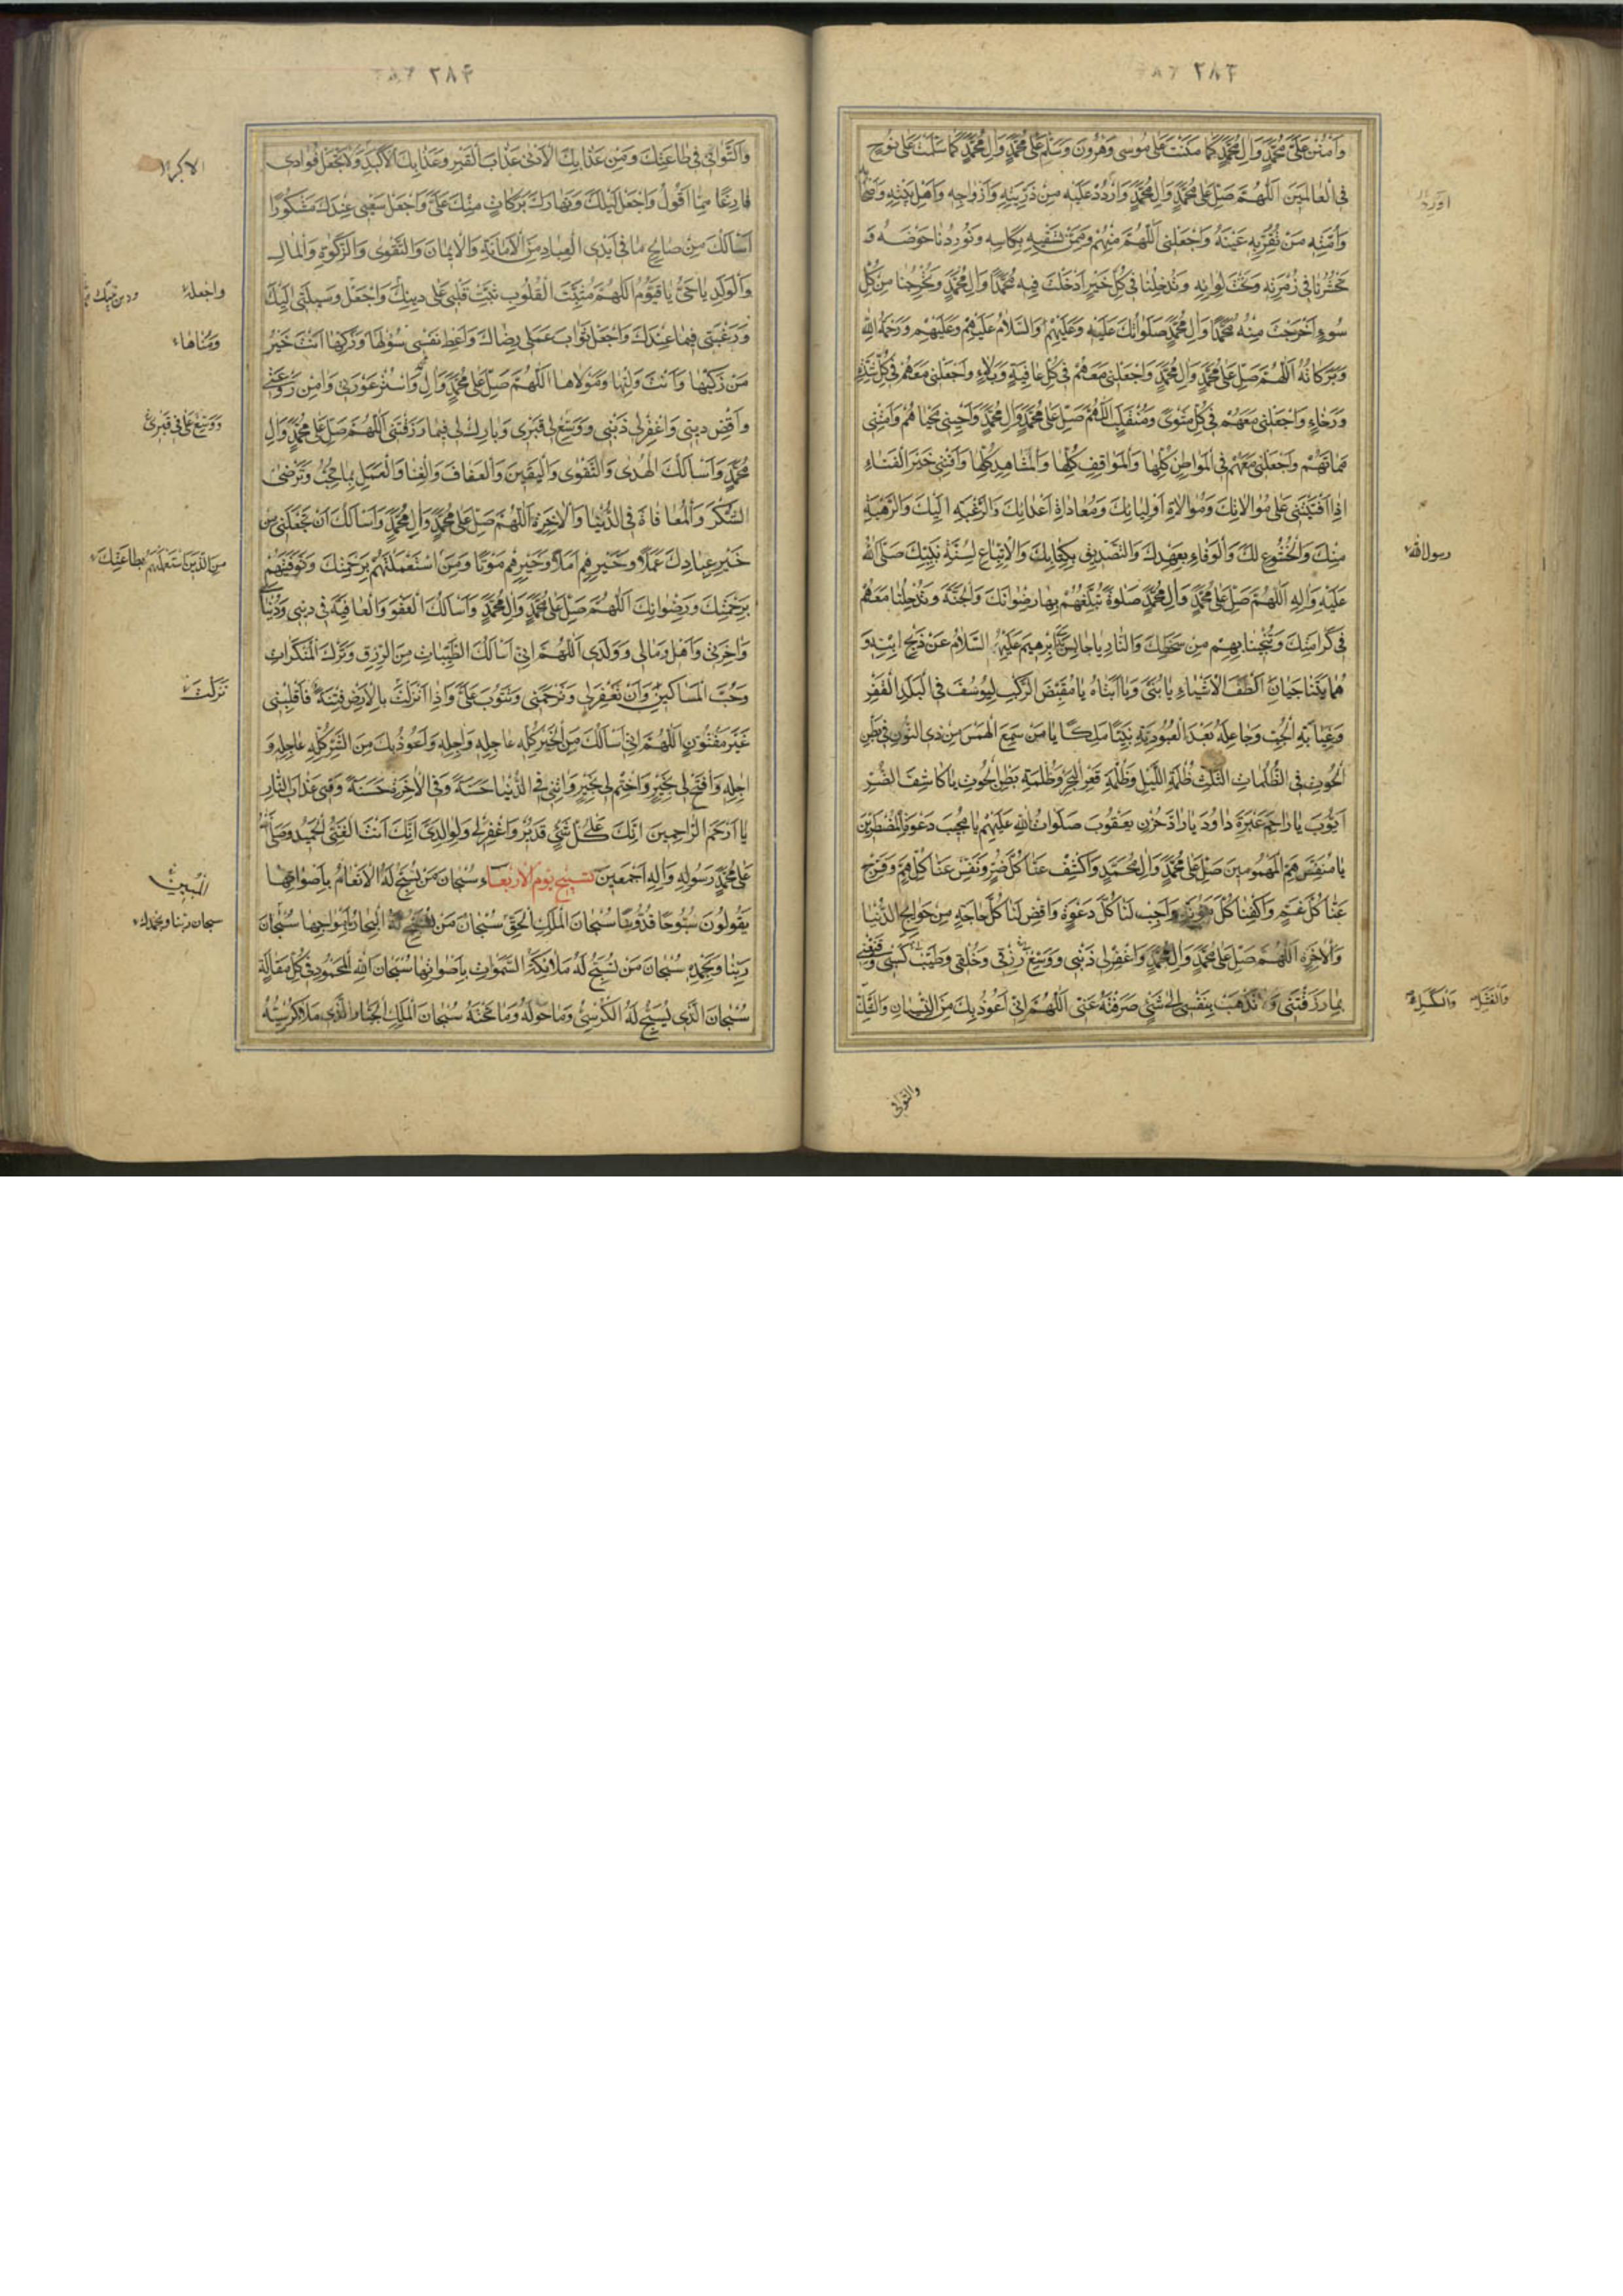 ٢٨٣
وَامْنُنْ عَلىٰ مُحَمَّدٍ وَالِ مُحَمَّدٍ كَما مَنَنْتَ عَلىٰ مُوسىٰ وَهٰرُونَ وَسَلِّمْ عَلىٰ مُحَمَّدٍ وَالِ مُحَمَّدٍ كَما سَلَّمْتَ عَلىٰ نُوحٍ
فِى الْعالَمينَ اَللّٰهُمَّ صَلِّ عَلىٰ مُحَمَّدٍ وَالِ مُحَمَّدٍ وَارْدُدْ عَلَيْهِ مِنْ ذُرِّيَّتِهِ وَاَزْواجِهِ وَاَهْلِ بَيْتِهِ وَاَصْحابِهِ
وَاُمَّتِهِ مَنْ تُقِرُّ بِهِ عَيْنَهُ وَاجْعَلْنى اَللّٰهُمَّ مِنْهُمْ وَمِمَّنْ تَسْقيهِ بِكَاْسِهِ وَتُورِدُنا حَوْضَهُ وَ
تَحْشُرُنا فى زُمْرَتِهِ وَتَحْتَ لِوائِهِ وَتُدْخِلُنا فى كُلِّ خَيْرٍ اَدْخَلْتَ فيهِ مُحَمَّدًا وَالَ مُحَمَّدٍ وَتُخْرِجُنا مِنْ كُلِّ
سُوءٍ اَخْرَجْتَ مِنْهُ مُحَمَّدًا وَالَ مُحَمَّدٍ صَلَواتُكَ عَلَيْهِ وَعَلَيْهِمْ وَالسَّلامُ عَلَيْهِ وَعَلَيْهِمْ وَرَحْمَةُ اللهِ
وَبَرَكاتُهُ اَللّٰهُمَّ صَلِّ عَلىٰ مُحَمَّدٍ وَالِ مُحَمَّدٍ وَاجْعَلْنى مَعَهُمْ فى كُلِّ عافِيَةٍ وَبَلاءٍ وَاجْعَلْنى مَعَهُمْ فى كُلِّ شِدَّةٍ
وَرَخاءٍ وَاجْعَلْنى مَعَهُمْ فى كُلِّ مَثْوًى وَمُنْقَلَبٍ اَللّٰهُمَّ صَلِّ عَلىٰ مُحَمَّدٍ وَالِ مُحَمَّدٍ وَاَحْيِنى مَحْياهُمْ وَاَمِتْنى
مَماتَهُمْ وَاجْعَلْنى مَعَهُمْ فِى الْمَواطِنِ كُلِّها وَالْمَواقِفِ كُلِّها وَالْمَشاهِدِ كُلِّها وَاَفْنِنى خَيْرَ الْفَناءِ
اِذا اَفْنَيْتَنى عَلىٰ مُوالاتِكَ وَمُوالاةِ اَوْلِيائِكَ وَمُعاداةِ اَعْدائِكَ وَالرَّغْبَةِ اِلَيْكَ وَالرَّهْبَةِ
مِنْكَ وَالْخُشُوعِ لَكَ وَالْوَفاءِ بِعَهْدِكَ وَالتَّصْديقِ بِكِتابِكَ وَالاِتِّباعِ لِسُنَّةِ نَبِيِّكَ صَلَّى اللهُ
عَلَيْهِ وَالِهِ اَللّٰهُمَّ صَلِّ عَلىٰ مُحَمَّدٍ وَالِ مُحَمَّدٍ صَلوةً تُبَلِّغُهُمْ بِها رِضْوانَكَ وَالْجَنَّةَ وَتُدْخِلُنا مَعَهُمْ
فى كَرامَتِكَ وَتُنْجينا بِهِمْ مِنْ سَخَطِكَ وَالنّارِ يا حابِسَ اِبْرهيمَ عَلَيْهِ السَّلامُ عَنْ ذَبْحِ ابْنِهِ وَ
هُما يَتَناجَيانِ اَلْطَفَ الْاَشْياءِ يا بُنَىَّ وَيا اَبَتاهُ يا مُقَيِّضَ الرَّكْبِ لِيُوسُفَ فِى الْبَلَدِ الْقَفْرِ
وَغَيابَةِ الْجُبِّ وَجاعِلَهُ بَعْدَ الْعُبُودِيَّةِ نَبِيًّا مَلِكًا يا مَنْ سَمِعَ الْهَمْسَ مِنْ ذِى النُّونِ فى بَطْنِ
الْحُوتِ فِى الظُّلُماتِ الثَّلٰثِ ظُلْمَةِ اللَّيْلِ وَظُلْمَةِ قَعْرِ الْبَحْرِ وَظُلْمَةِ بَطْنِ الْحُوتِ يا كاشِفَ الضُّرِّ
اَيُّوبَ يا راحِمَ عَبْرَةِ داوُدَ يا رادَّ حُزْنِ يَعْقُوبَ صَلَواتُ اللهِ عَلَيْهِمْ يا مُجيبَ دَعْوَةِ الْمُضْطَرّينَ
يا مُنَفِّسَ هَمِّ الْمَهْمُومينَ صَلِّ عَلىٰ مُحَمَّدٍ وَالِ مُحَمَّدٍ وَاكْشِفْ عَنّا كُلَّ ضُرٍّ وَنَفِّسْ عَنّا كُلَّ هَمٍّ وَفَرِّجْ
عَنّا كُلَّ غَمٍّ وَاكْفِنا كُلَّ مَؤُنَةٍ وَاَجِبْ لَنا كُلَّ دَعْوَةٍ وَاقْضِ لَنا كُلَّ حاجَةٍ مِنْ حَوائِجِ الدُّنْيا
وَالْاخِرَةِ اَللّٰهُمَّ صَلِّ عَلىٰ مُحَمَّدٍ وَالِ مُحَمَّدٍ وَاغْفِرْ لى ذَنْبى وَوَسِّعْ رِزْقى وَخُلُقى وَطَيِّبْ كَسْبى وَقَنِّعْنى
بِما رَزَقْتَنى وَلا تَذْهَبْ بِنَفْسى اِلىٰ شَىْءٍ صَرَفْتَهُ عَنّى اَللّٰهُمَّ اِنّى اَعُوذُ بِكَ مِنَ النِّسْيانِ
اَوْرِدْ
رسول الله
وَالْفَشَلِ وَالْكَسَلِ
والتَّوانى
٢٨۴
وَالتَّوانى فى طاعَتِكَ وَمِنْ عَذابِكَ الْاَدْنىٰ عَذابِ الْقَبْرِ وَعَذابِكَ الْاَكْبَرِ وَلا تَجْعَلْ فُؤادى
فارِغًا مِمّا اَقُولُ وَاجْعَلْ لَيْلَكَ وَنَهارَكَ بَرَكاتٍ مِنْكَ عَلَىَّ وَاجْعَلْ سَعْيى عِنْدَكَ مَشْكُورًا
اَسْاَلُكَ مِنْ صالِحِ ما فى اَيْدِى الْعِبادِ مِنَ الْاَمانَةِ وَالْايمانِ وَالتَّقْوىٰ وَالزَّكٰوةِ وَالْمالِ
وَالْوَلَدِ يا حَىُّ يا قَيُّومُ اَللّٰهُمَّ مُثَبِّتَ الْقُلُوبِ ثَبِّتْ قَلْبى عَلىٰ دينِكَ وَاجْعَلْ وَسيلَتى اِلَيْكَ
وَرَغْبَتى فيما عِنْدَكَ وَاجْعَلْ ثَوابَ عَمَلى رِضاكَ وَاَعْطِ نَفْسى سُؤْلَها وَزَكِّها اَنْتَ خَيْرُ
مَنْ زَكّٰيها وَاَنْتَ وَلِيُّها وَمَوْلاها اَللّٰهُمَّ صَلِّ عَلىٰ مُحَمَّدٍ وَالِ وَاسْتُرْ عَوْرَتى وَامِنْ رَوْعَتى
وَاقْضِ دَيْنى وَاغْفِرْ لى ذَنْبى وَوَسِّعْ لى قَبْرى وَبارِكْ لى فيما رَزَقْتَنى اَللّٰهُمَّ صَلِّ عَلىٰ مُحَمَّدٍ وَالِ
مُحَمَّدٍ وَاَسْاَلُكَ الْهُدىٰ وَالتَّقْوىٰ وَالْيَقينَ وَالْعَفافَ وَالْغِنا وَالْعَمَلَ بِما تُحِبُّ وَتَرْضىٰ
الشُّكْرَ وَالْمُعافاةَ فِى الدُّنْيا وَالْاخِرَةِ اَللّٰهُمَّ صَلِّ عَلىٰ مُحَمَّدٍ وَالِ مُحَمَّدٍ وَاَسْاَلُكَ اَنْ تَجْعَلَنى مِنْ
خَيْرِ عِبادِكَ عَمَلًا وَخَيْرِهِمْ اَمَلًا وَخَيْرِهِمْ مَوْتًا وَمَنِ اسْتَعْمَلْتَهُمْ بِرَحْمَتِكَ وَتَوَفَّيْتَهُمْ
بِرَحْمَتِكَ وَرِضْوانِكَ اَللّٰهُمَّ صَلِّ عَلىٰ مُحَمَّدٍ وَالِ مُحَمَّدٍ وَاَسْاَلُكَ الْعَفْوَ وَالْعافِيَةَ فى دينى وَدُنْياىَ
وَاخِرَتى وَاَهْلى وَمالى وَوَلَدى اَللّٰهُمَّ اِنّى اَسْاَلُكَ الطَّيِّباتِ مِنَ الرِّزْقِ وَتَرْكَ الْمُنْكَراتِ
وَحُبَّ الْمَساكينِ وَاَنْ تَغْفِرَ لى وَتَرْحَمَنى وَتَتُوبَ عَلَىَّ وَاِذا اَنْزَلْتَ بِالْاَرْضِ فِتْنَةً فَاقْلِبْنى
غَيْرَ مَفْتُونٍ اَللّٰهُمَّ اِنّى اَسْاَلُكَ مِنَ الْخَيْرِ كُلِّهِ عاجِلِهِ وَاجِلِهِ وَاَعُوذُ بِكَ مِنَ الشَّرِّ كُلِّهِ عاجِلِهِ وَ
اجِلِهِ وَافْتَحْ لى بِخَيْرٍ وَاخْتِمْ لى بِخَيْرٍ وَاتِنى فِى الدُّنْيا حَسَنَةً وَفِى الْاخِرَةِ حَسَنَةً وَقِنى عَذابَ النّارِ
يا اَرْحَمَ الرّاحِمينَ اِنَّكَ عَلىٰ كُلِّ شَىْءٍ قَديرٌ وَاغْفِرْ لى وَلِوالِدَىَّ اِنَّكَ اَنْتَ الْغَنِىُّ الْحَميدُ وَصَلَّى اللهُ
عَلىٰ مُحَمَّدٍ رَسُولِهِ وَالِهِ اَجْمَعينَ تسبيح يوم الاربعاء سُبْحانَ مَنْ تُسَبِّحُ لَهُ الْاَنْعامُ بِاَصْواتِها
يَقُولُونَ سُبُّوحًا قُدُّوسًا سُبْحانَ الْمَلِكِ الْحَقِّ سُبْحانَ مَنْ تُسَبِّحُ لَهُ الْبِحارُ بِاَمْواجِها سُبْحانَ
رَبِّنا وَبِحَمْدِهِ سُبْحانَ مَنْ تُسَبِّحُ لَهُ مَلائِكَةُ السَّمٰواتِ بِاَصْواتِها سُبْحانَ اللهِ الْمَحْمُودِ فى كُلِّ مَقالَةٍ
سُبْحانَ الَّذى يُسَبِّحُ لَهُ الْكُرْسِىُّ وَما حَوْلَهُ وَما تَحْتَهُ سُبْحانَ الْمَلِكِ الْجَبّارِ الَّذى مَلَاَ كُرْسِيُّهُ
الاكبر
واجعله
ومُناها
وَوَسِّعْ عَلَىَّ فى قبرى
من الذين استعملتهم بطاعتك
نَزَلَتْ
المُبين
سبحانك ربنا وبحمدك